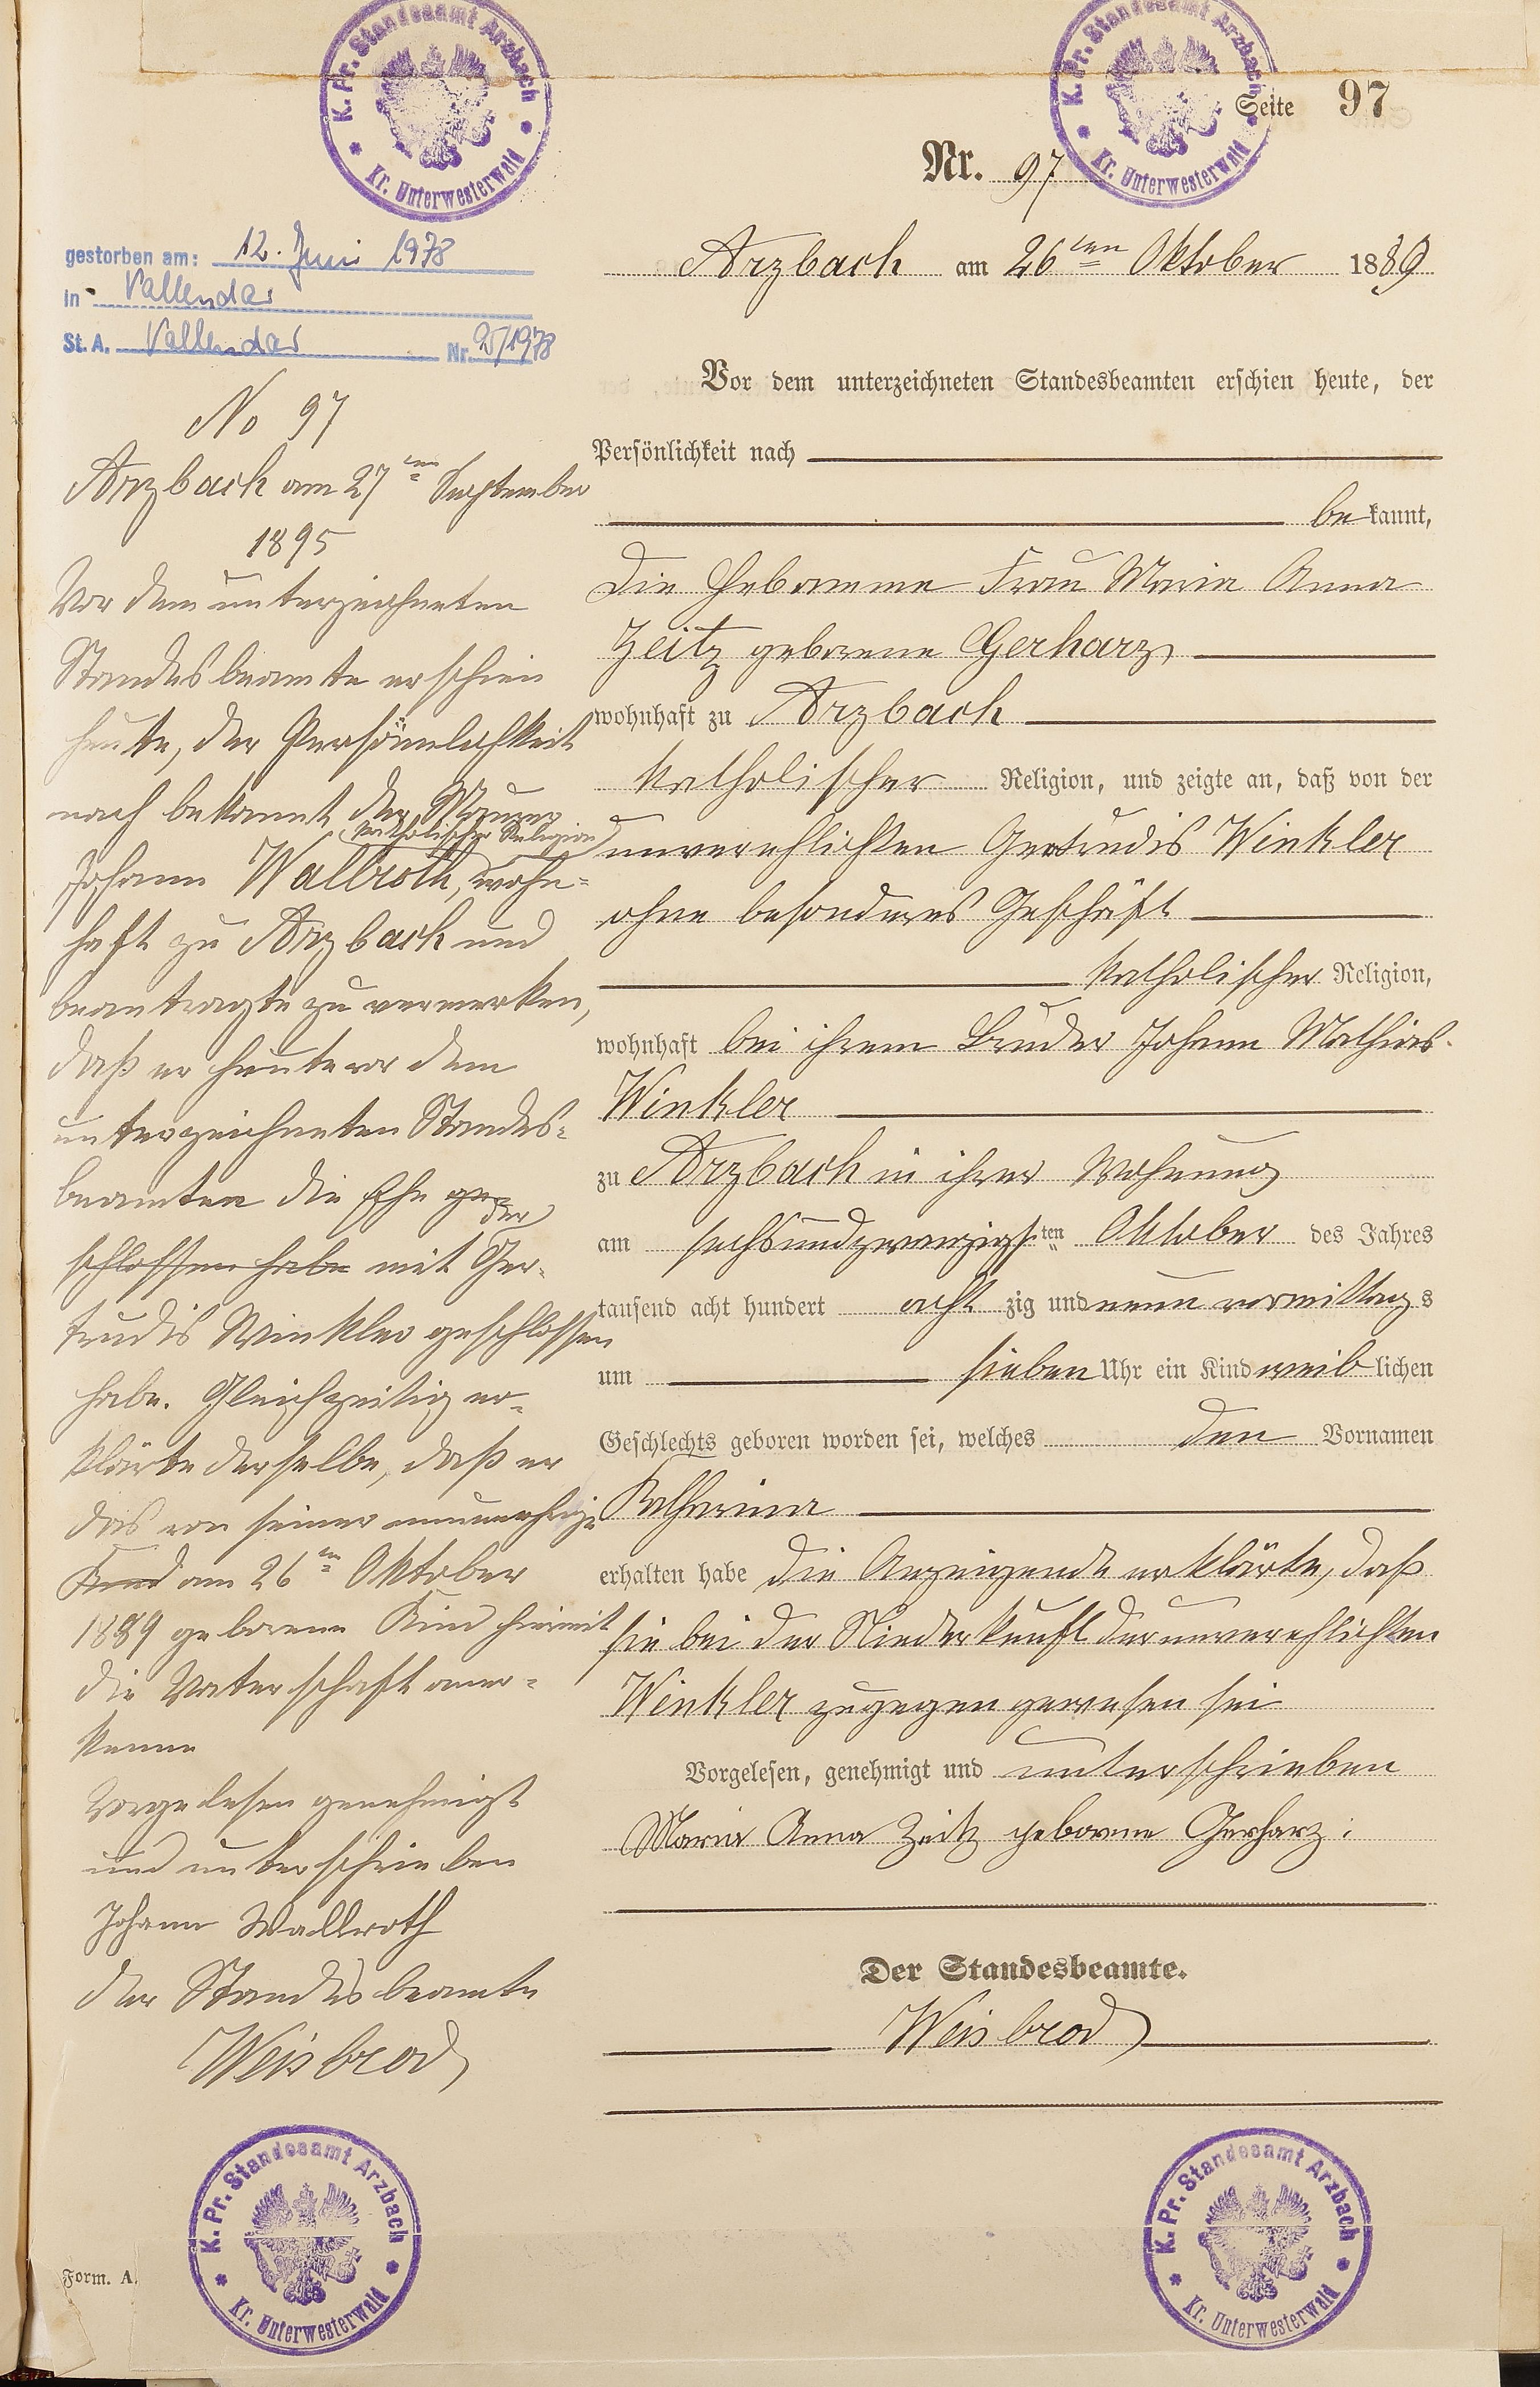 K. Pr. Standesamt Arzbach
* Kr. Unterwesterwald *
K. Pr. Standesamt Arzbach
* Kr. Unterwesterwald *
Seite 97
Nr. 97
Arzbach am 26ten Oktober 1889
Vor dem unterzeichneten Standesbeamten erschien heute, der
Persönlichkeit nach
bekannt,
die Hebamme Frau Maria Anna
Zeitz geborene Gerharz
wohnhaft zu Arzbach
katholischer Religion, und zeigte an, daß von der
unverehlichten Gertrudis Winkler
ohne besonderes Geschäft
katholischer Religion,
wohnhaft bei ihrem Bruder Johann Mathias
Winkler
zu Arzbach in ihrer Wohnung
am sechsundzwanzigsten Oktober des Jahres
tausend acht hundert acht zig und neun vormittags
um sieben Uhr ein Kind weiblichen
Geschlechts geboren worden sei, welches den Vornamen
Katharina
erhalten habe die Anzeigende erklärte, daß
sie bei der Niederkunft der unverehlichten
Winkler zugegen gewesen sei
Vorgelesen, genehmigt und unterschrieben
Maria Anna Zeitz geborene Gerharz.
Der Standesbeamte.
Weisbrod
gestorben am: 12. Juni 1978
in Vallendar
St. A. Vallendar Nr. 25/1978
No 97
Arzbach am 27ten September
1895
Vor dem unterzeichneten
Standesbeamte erschien
heute, der Persönlichkeit
nach bekannt der Maurer
katholischer Religion
Johann Wallroth, wohn=
haft zu Arzbach und
beantragte zu vermerken,
daß er heute vor dem
unterzeichneten Standes=
beamten die Ehe ge
der
schlossen habe mit Ger=
trudis Winkler geschlossen
habe. Gleichzeitig er=
klärte derselbe, daß er
das von seiner nunmehrige
Kind am 26ten Oktober
1889 geborene Kind hiermit
die Vaterschaft aner=
kenne
Vorgelesen genehmigt
und unterschrieben
Johann Wallroth
der Standesbeamte
Weisbrod
K. Pr. Standesamt Arzbach
* Kr. Unterwesterwald *
K. Pr. Standesamt Arzbach
* Kr. Unterwesterwald *
Form. A.